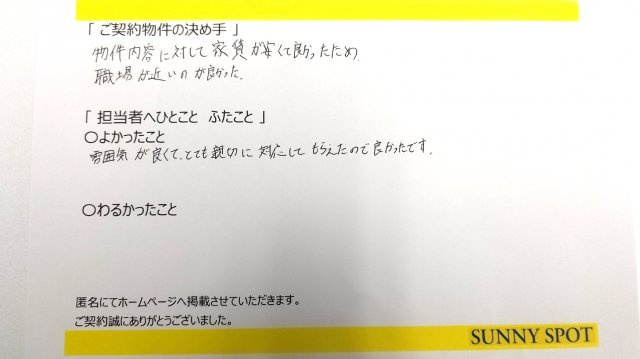 「 ご契約物件の決め手 」
物件内容に対して家賃が安くて良かったため
職場が近いのが良かった.
「 担当者へひとこと ふたこと 」
〇よかったこと
雰囲気が良くて、とても親切に対応してもらえたので良かったです.
〇わるかったこと
匿名にてホームページへ掲載させていただきます。
ご契約誠にありがとうございました。
SUNNY SPOT